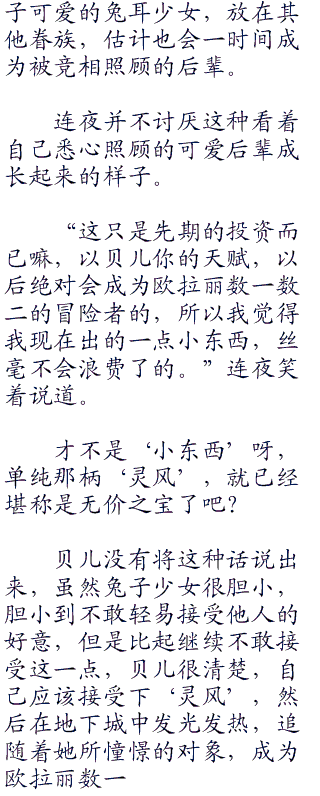 子可爱的兔耳少女，放在其
他眷族，估计也会一时间成
为被竞相照顾的后辈。
连夜并不讨厌这种看着
自己悉心照顾的可爱后辈成
长起来的样子。
“这只是先期的投资而
已嘛，以贝儿你的天赋，以
后绝对会成为欧拉丽数一数
二的冒险者的，所以我觉得
我现在出的一点小东西，丝
毫不会浪费了的。”连夜笑
着说道。
才不是‘小东西’呀，
单纯那柄‘灵风’，就已经
堪称是无价之宝了吧？
贝儿没有将这种话说出
来，虽然兔子少女很胆小，
胆小到不敢轻易接受他人的
好意，但是比起继续不敢接
受这一点，贝儿很清楚，自
己应该接受下‘灵风’，然
后在地下城中发光发热，追
随着她所憧憬的对象，成为
欧拉丽数一